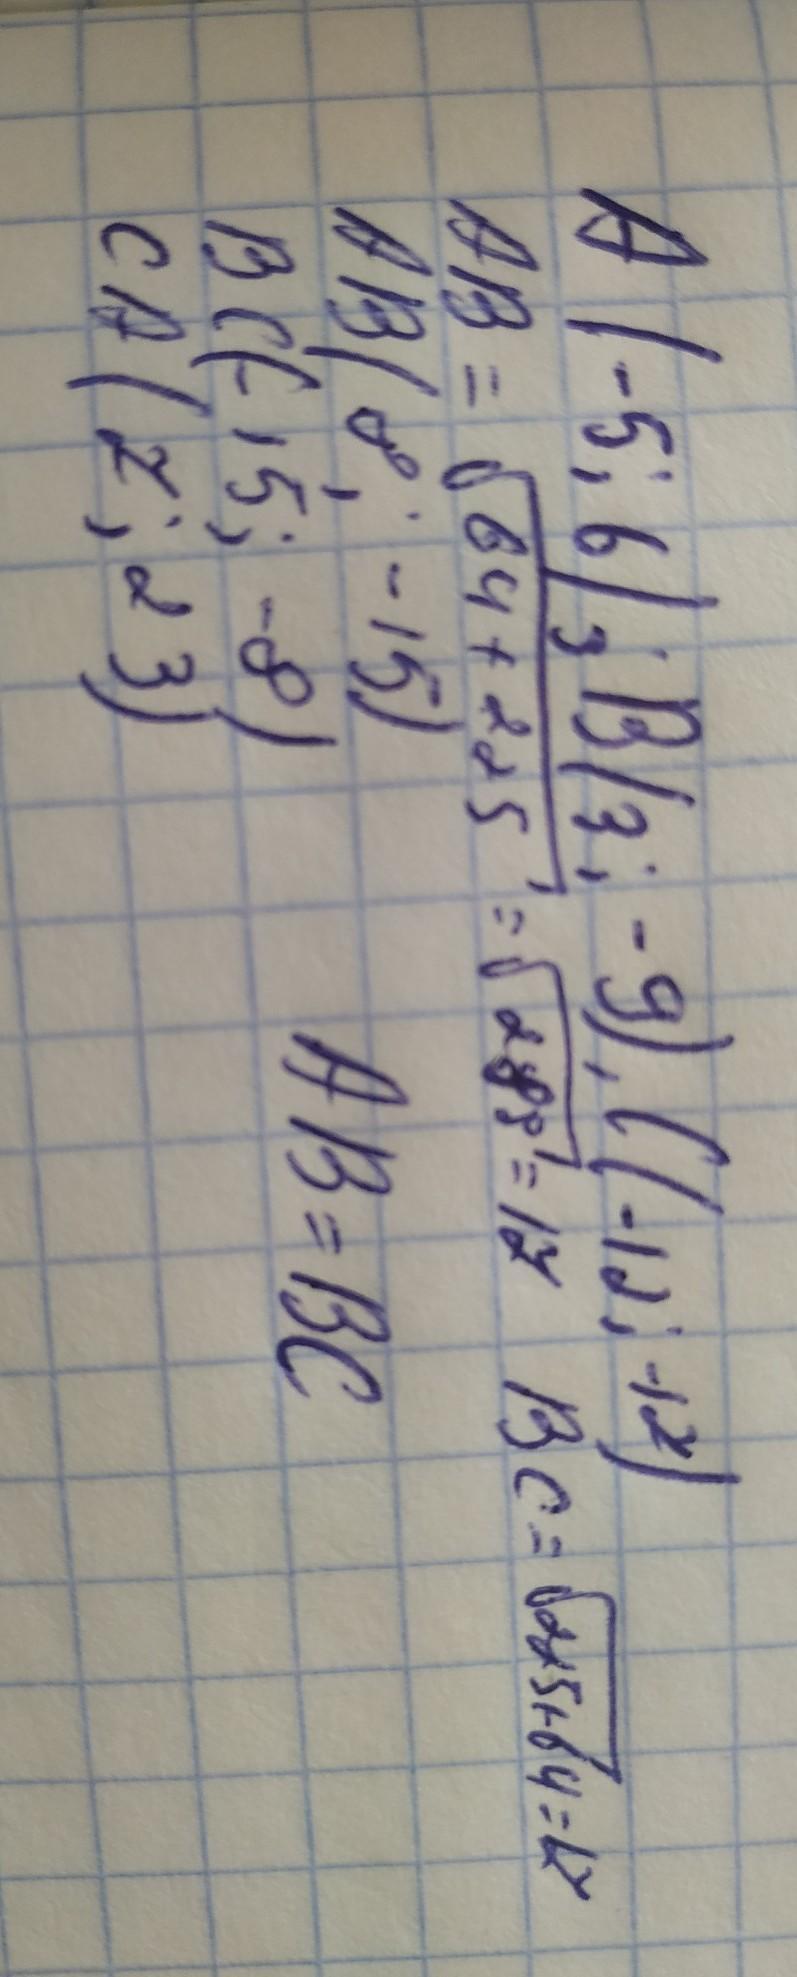 A(-5; 6), B(3; -9), C(-12; -17)
AB = √64+225 = √289 = 17 BC = √225+64 = 17
AB(8; -15)
BC(-15; -8)
CA(7; 23)
AB = BC